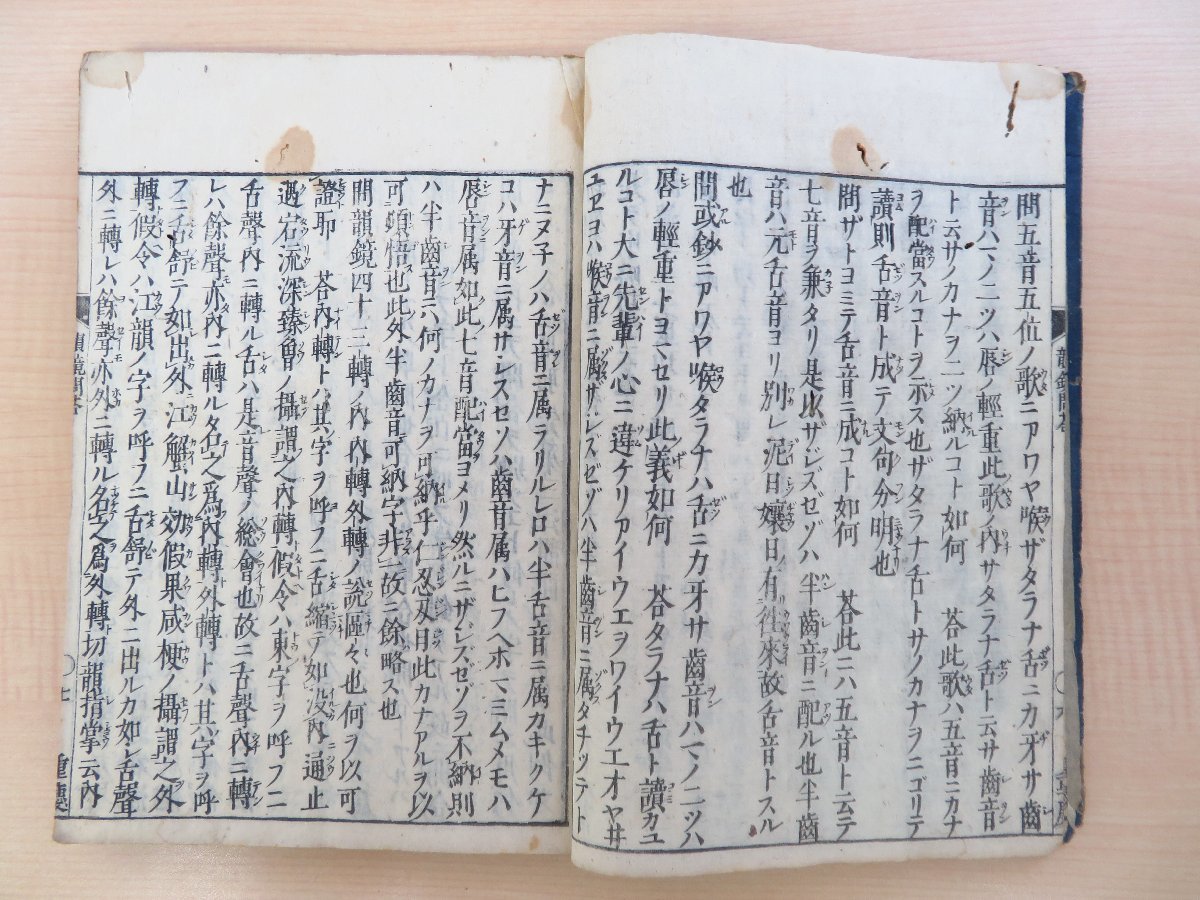 問五音五位ノ歌ニアワヤ喉サタラナ舌ニカ牙サ齒
音ハマノ二ツハ唇ノ輕重此歌ノ内サタラナ舌ト云サ齒音
ト云サノカナヲ二ツ納ルコト如何　荅此歌ハ五音ニカナ
ヲ配當スルコトヲ示ス也ザタラナ舌トサノカナヲニゴリテ
讀則舌音ト成テ文句分明也
問ザトヨミテ舌音ニ成コト如何　荅此ニハ五音ト云テ
七音ヲ兼タリ是以ザジズゼゾハ半齒音ニ配ル也半齒
音ハ元舌音ヨリ別レ泥日孃日有徃來故舌音トスル
也
問或鈔ニアワヤ喉タラナハ舌ニカ牙サ齒音ハマノ二ツハ
唇ノ輕重トヨマセリ此義如何　荅タラナハ舌ト讀カユ
ルコト大ニ先輩ノ心ニ違ケリアイウエヲワイウエオヤ井
ユヱヨハ喉音ニ属ザジズゼゾハ半齒音ニ属タチツテト
ナニヌ子ノハ舌音ニ属ラリルレロハ半舌音ニ属カキクケ
コハ牙音ニ属サシスセソハ齒音属ハヒフヘホマミムメモハ
唇音属如此七音配當ヨメリ然ルニザジズゼゾヲ不納則
ハ半齒音ニ何ノカナヲ可納乎仁忍刄日此カナアルヲ以
可頓悟也此外半齒音可納字非一故ニ餘略ス也
問韻鏡四十三轉ノ内内轉外轉ノ説區々也何ヲ以可
證耶　荅内轉トハ其字ヲ呼フニ舌縮テ如没内通止
遇宕流深臻曾ノ攝謂之内轉假令ハ東字ヲ呼フニ
舌聲内ニ轉ル舌ハ是音聲ノ総會也故ニ舌聲内ニ轉
レハ餘聲亦内ニ轉ル名之爲内轉外轉トハ其字ヲ呼
フニ舌舒テ如出外江蟹山効假果咸梗ノ攝謂之外
轉假令ハ江韻ノ字ヲ呼フニ舌舒テ外ニ出ルカ如シ舌聲
外ニ轉レハ餘聲亦外ニ轉ル名之爲外轉切韻指掌云内
韻鏡問答